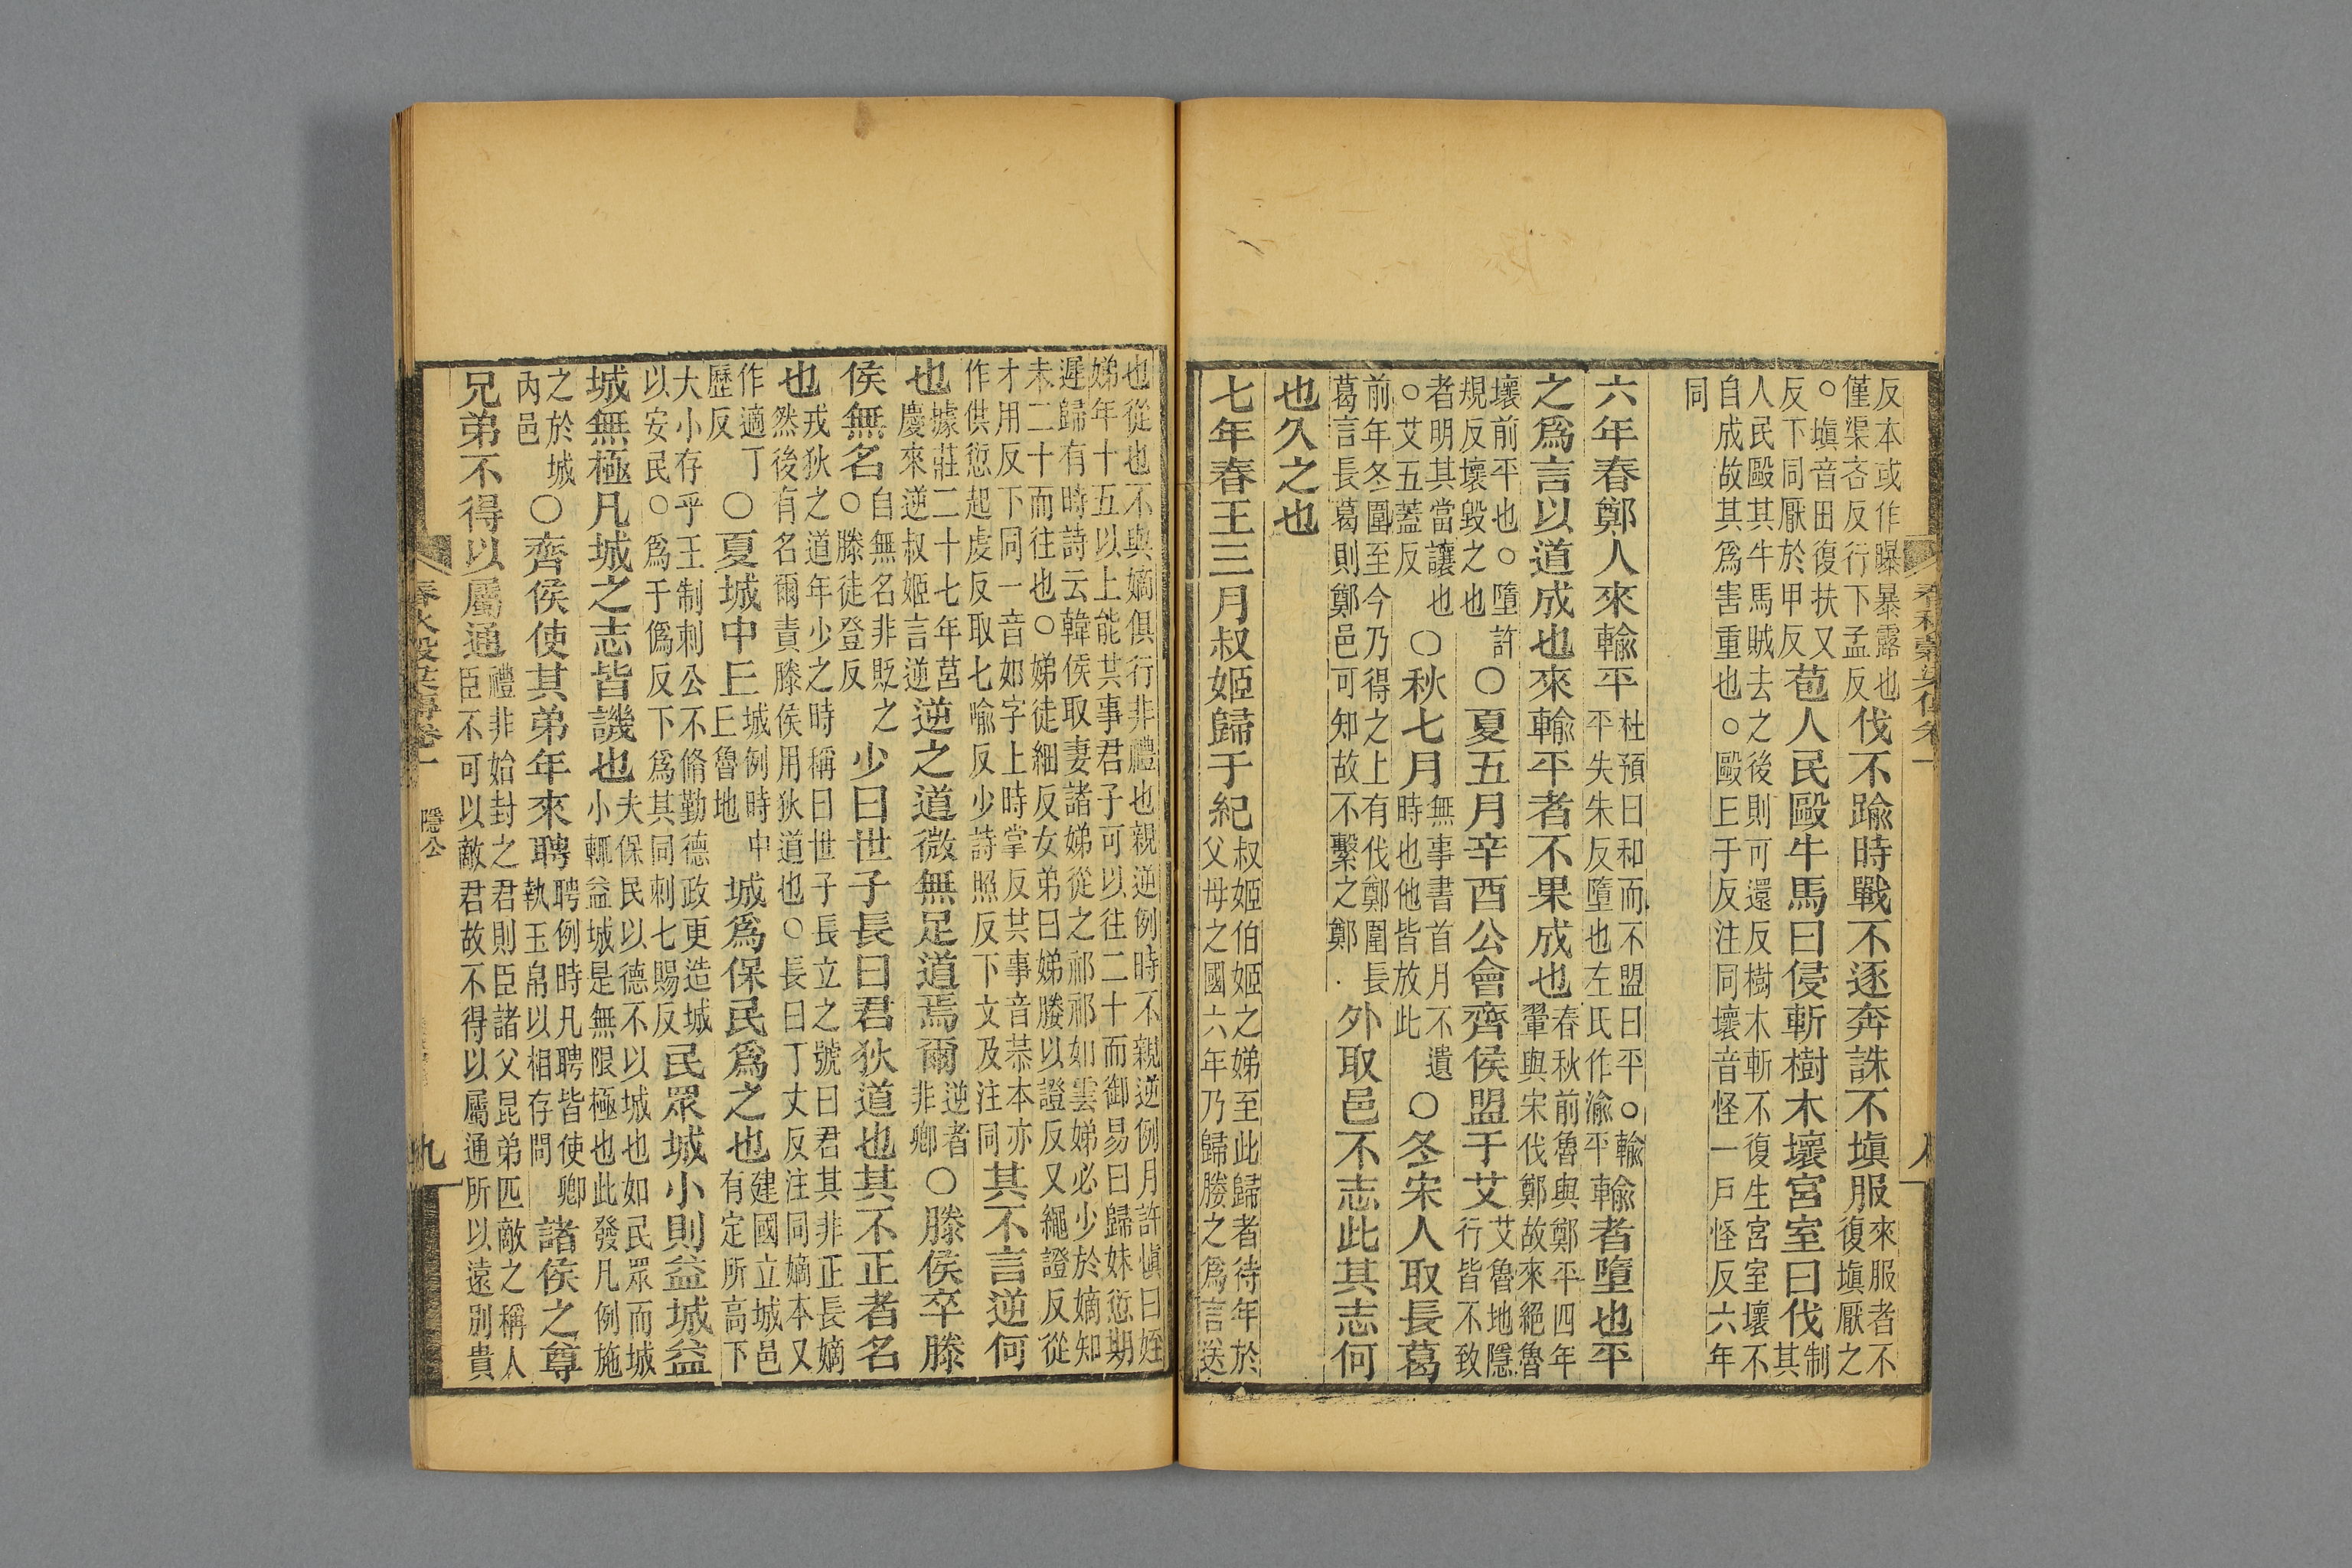 反本或作曝暴露也
僅渠吝反行下孟反
伐不踰時戰不逐奔誅不塡服
來服者不
復塡厭之
○塡音田復扶又
反下同厭於甲反
苞人民毆牛馬曰侵斬樹木壞宮室曰伐
制
其
人民毆其牛馬賊去之後則可還反樹木斬不復生宮室壞不
自成故其爲害重也○毆丘于反注同壞音怪一戸怪反六年
同
六年春鄭人來輸平
杜預曰和而不盟曰平○輸
平失朱反墮也左氏作渝平
輸者墮也平
之爲言以道成也來輸平者不果成也
春秋前魯與鄭平四年
翬與宋伐鄭故來絕魯
壞前平也○墮許
規反壞毀之也
○夏五月辛酉公會齊侯盟于艾
艾魯地隱
行皆不致
者明其當讓也
○艾五蓋反
○秋七月
無事書首月不遺
時也他皆放此
○冬宋人取長葛
前年冬圍至今乃得之上有伐鄭圍長
葛言長葛則鄭邑可知故不繫之鄭
外取邑不志此其志何
也久之也
七年春王三月叔姬歸于紀
叔姬伯姬之娣至此歸者待年於
父母之國六年乃歸媵之爲言送
也從也不與嫡俱行非禮也親逆例時不親逆例月許愼曰姪
娣年十五以上能共事君子可以往二十而御易曰歸妹愆期
遲歸有時詩云韓侯取妻諸娣從之祁祁如雲娣必少於嫡知
未二十而往也○娣徒細反女弟曰娣媵以證反又繩證反從
才用反下同一音如字上時掌反共事音恭本亦
作供愆起虔反取七喻反少詩照反下文及注同
其不言逆何
也
據莊二十七年莒
慶來逆叔姬言逆
逆之道微無足道焉爾
逆者
非卿
○滕侯卒滕
侯無名
自無名非貶之
○滕徒登反
少曰世子長曰君狄道也其不正者名
也
戎狄之道年少之時稱曰世子長立之號曰君其非正長嫡
然後有名爾責滕侯用狄道也○長曰丁丈反注同嫡本又
作適丁
歷反
○夏城中丘
城例時中
丘魯地
城爲保民爲之也
建國立城邑
有定所高下
大小存乎王制刺公不脩勤德政更造城
以安民○爲于僞反下爲其同刺七賜反
民眾城小則益城益
城無極凡城之志皆譏也
夫保民以德不以城也如民眾而城
小輒益城是無限極也此發凡例施
之於城
內邑
○齊侯使其弟年來聘
聘例時凡聘皆使卿
執玉帛以相存問
諸侯之尊
兄弟不得以屬通
禮非始封之君則臣諸父昆弟匹敵之稱人
臣不可以敵君故不得以屬通所以遠別貴
春秋穀梁傳卷一
隱公
九